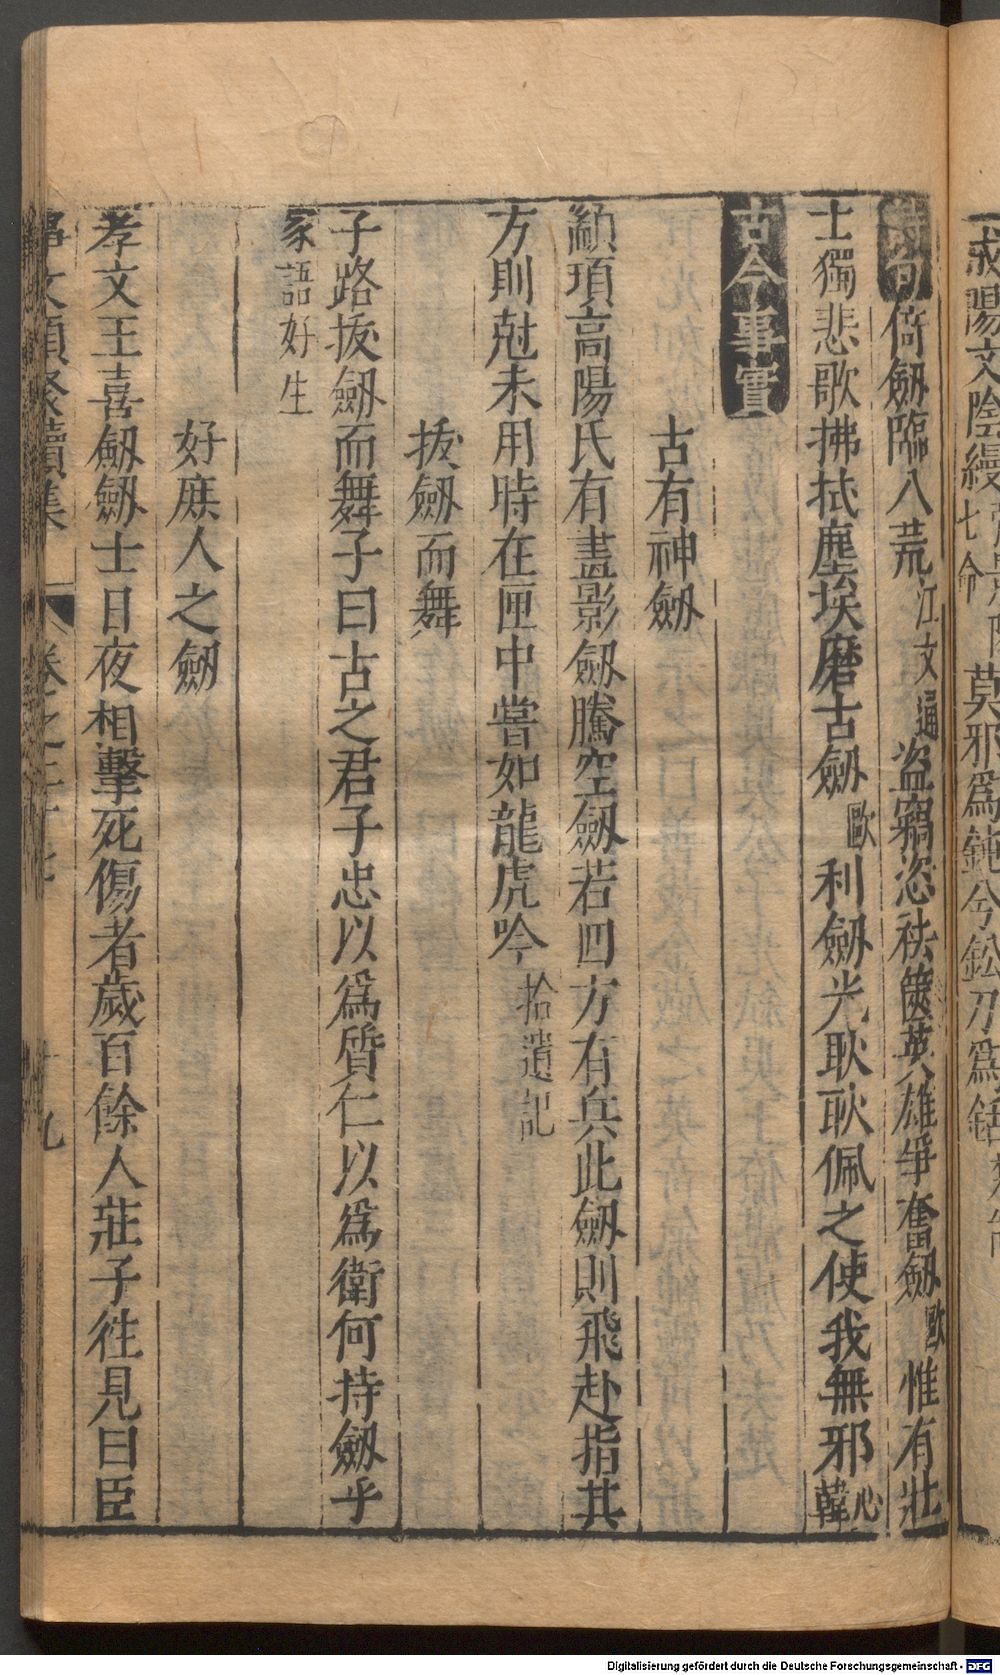 或陽文陰縵七命莫邪爲鈍兮鉛刀爲銛
詩句倚劔臨八荒江文通盗竊恣祛篋英雄爭奮劔歐惟有壯
士獨悲歌拂拭塵埃磨古劔歐利劔光耿耿佩之使我無邪心韓
古今事實
古有神劔
顓頊高陽氏有畫影劔騰空劔若四方有兵此劔則飛赴指其
方則尅未用時在匣中嘗如龍虎吟拾遺記
拔劔而舞
子路拔劔而舞子曰古之君子忠以爲質仁以爲衛何持劔乎
家語好生
好庶人之劔
孝文王喜劔劔士日夜相擊死傷者歲百餘人莊子徃見曰臣
事文類聚續集 卷之二十七 十九
Digitalisierung gefördert durch die Deutsche Forschungsgemeinschaft - DFG